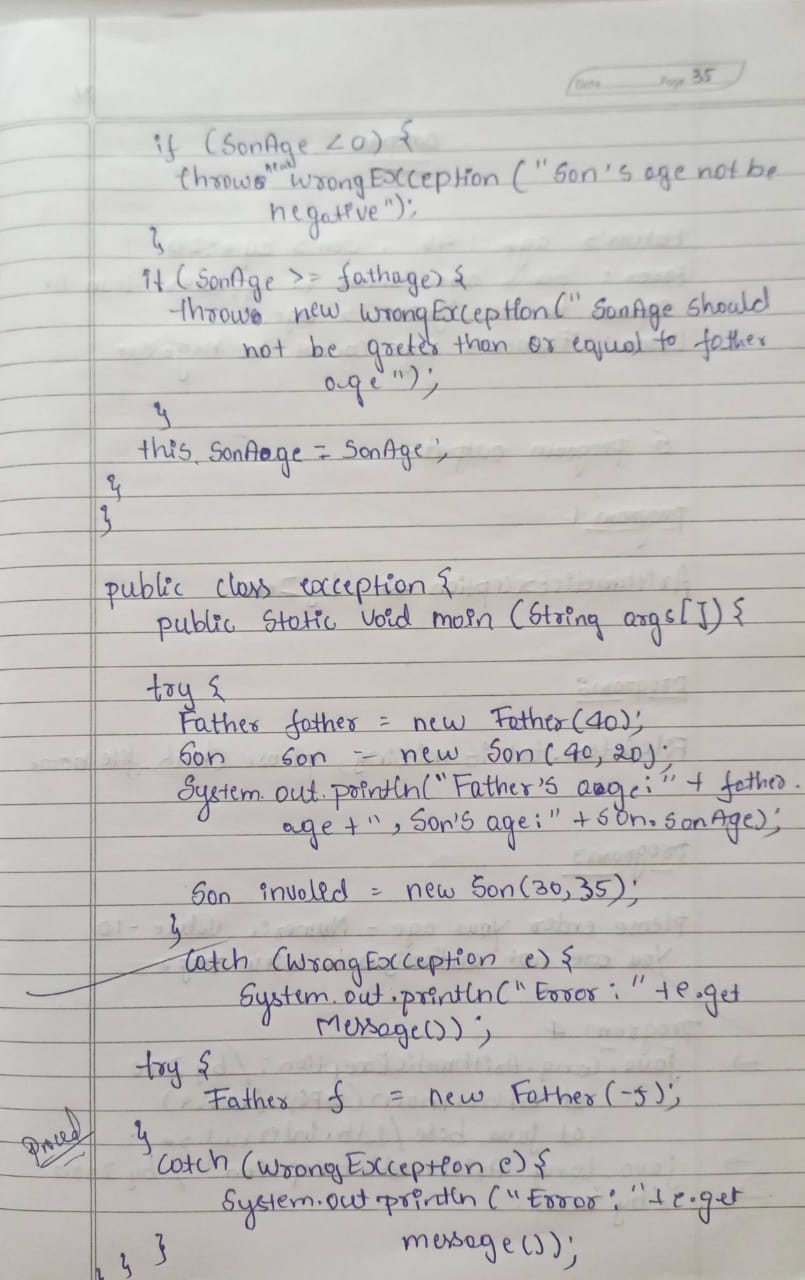 Date Page 35
if (SonAge <0) {
new
throws WrongException ("Son's age not be
negative");
}
if (SonAge >= fathage) {
throws new WrongException (" SonAge should
not be greter than or equal to father
age");
}
this. SonAage = SonAge;
}
}
public class exception {
public Static Void main (String args[]) {
try {
Father father = new Father(40);
Son Son = new Son (40, 20);
System. out. println("Father's aage:" + father.
age + ", Son's age:" + son. sonAge);
Son invalid = new Son (30, 35);
}
Catch (WrongException e) {
System. out. println (" Error : " + e. get
Message());
try {
Father f = new Father (-5);
}
Catch (Wrong Exception e) {
System. out println ("Error: " + e. get
message());
} } }